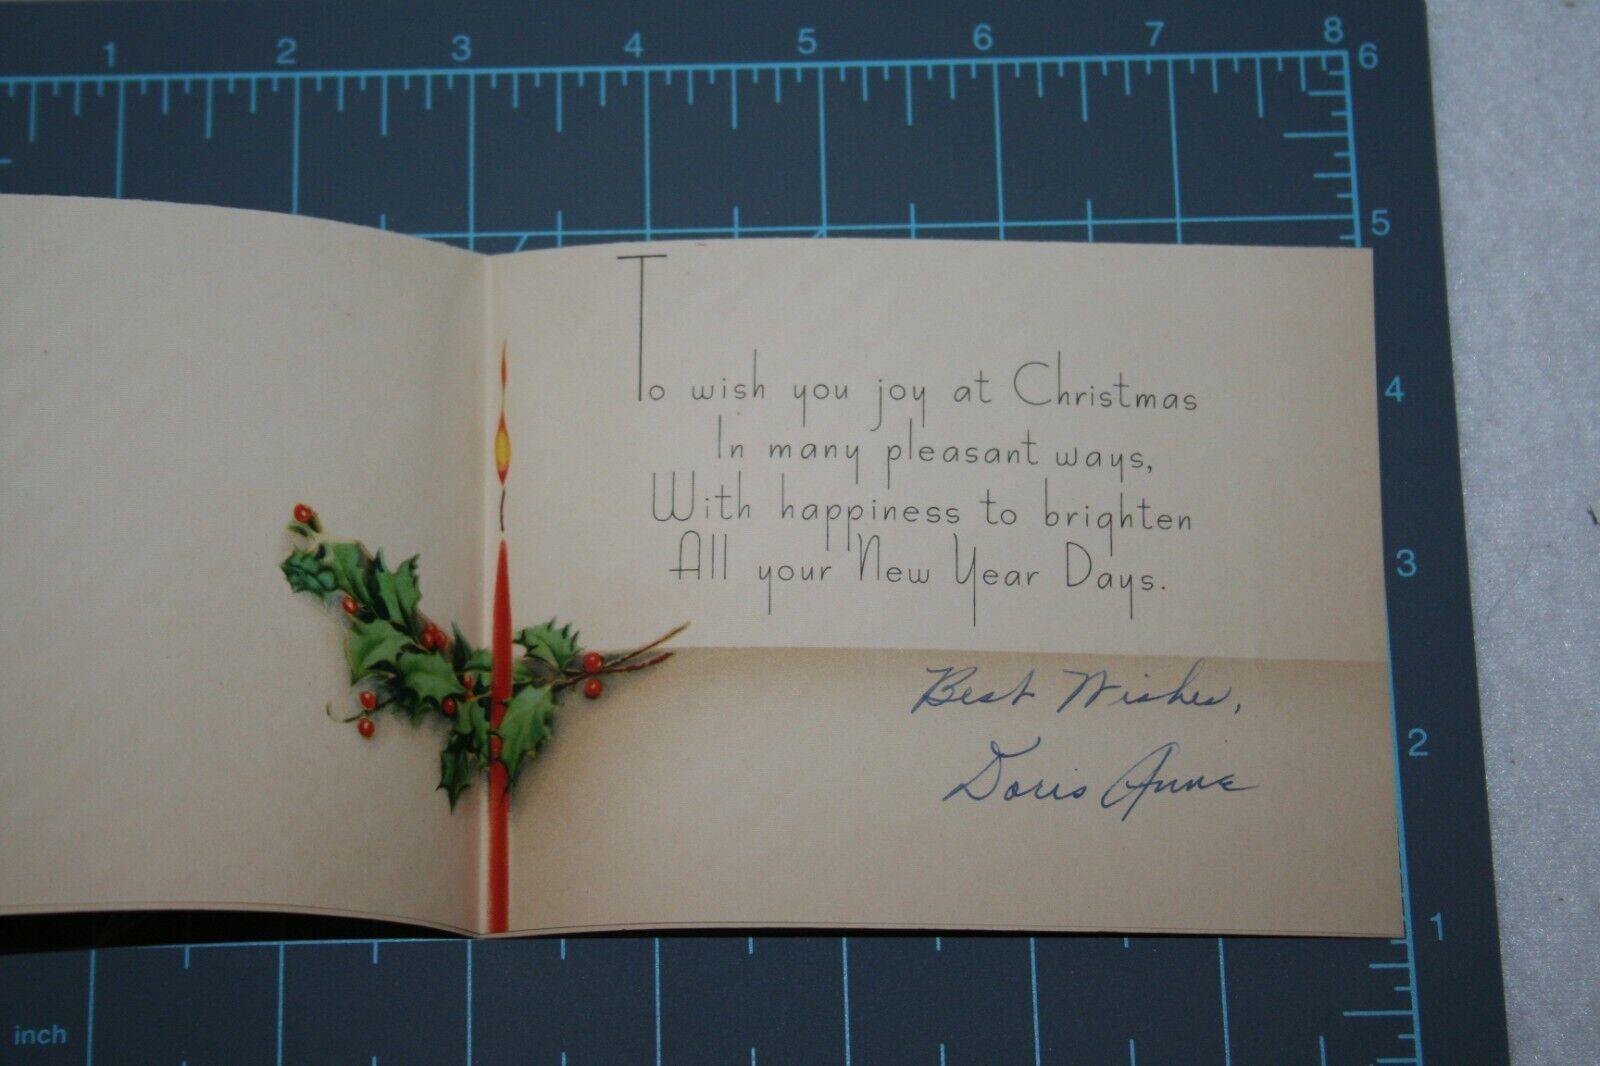 1 2 3 4 5 6 7 8
6
5
To wish you joy at Christmas
In many pleasant ways,
With happiness to brighten
All your New Year Days.
Best Wishes,
Doris Anne
4
3
2
1
inch